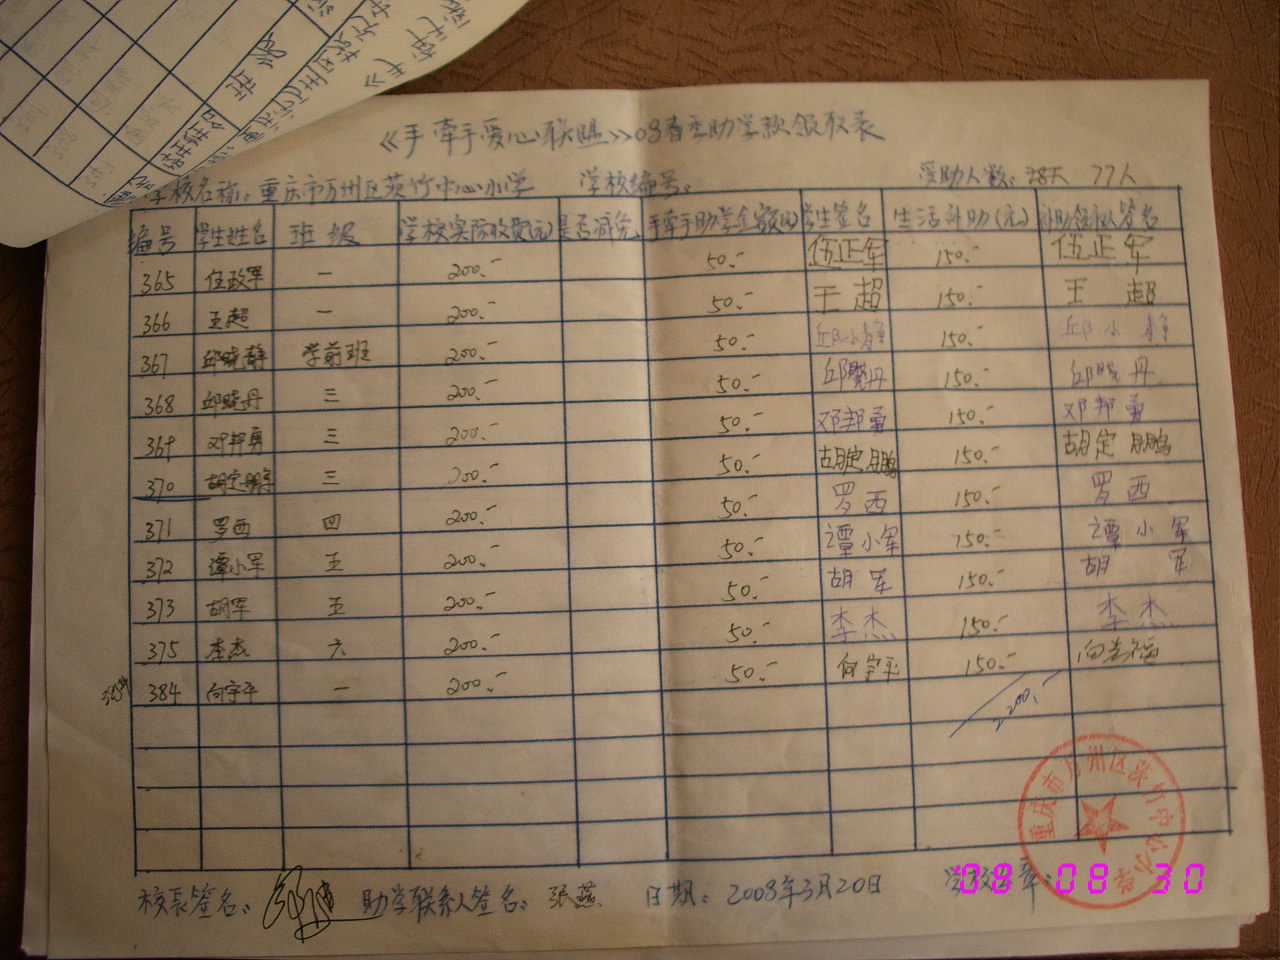 《手牵手爱心联盟》08春季助学款领取表
学校名称：重庆市万州区茨竹中心小学 学校编号： 受助人数：38天 77人
编号 学生姓名 班级 学校实际收费(元) 是否减免 手牵手助学金额(元) 学生签名 生活补助(元) 补助领取人签名
365 伍政军 一 200.- 50.- 伍正军 150.- 伍正军
366 王超 一 200.- 50.- 王超 150.- 王超
367 邱晓静 学前班 200.- 50.- 邱小静 150.- 邱小静
368 邱晓丹 三 200.- 50.- 邱晓丹 150.- 邱晓丹
369 邓邦勇 三 200.- 50.- 邓邦勇 150.- 邓邦勇
370 胡定鹏 三 200.- 50.- 胡定鹏 150.- 胡定鹏
371 罗西 四 200.- 50.- 罗西 150.- 罗西
372 谭小军 五 200.- 50.- 谭小军 150.- 谭小军
373 胡军 五 200.- 50.- 胡军 150.- 胡军
375 李杰 六 200.- 50.- 李杰 150.- 李杰
384 向宇平 一 200.- 50.- 向宇平 150.-
2200.-
重庆市万州区茨竹中心小学
校长签名： 助学联系人签名：张燕 日期：2008年3月20日 学校公章：
08 08 30